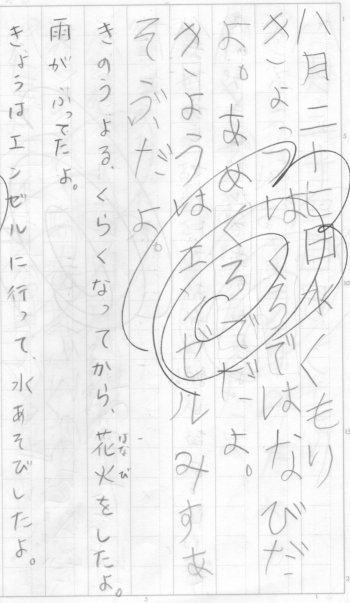 八月二十一日水くもり
きようはくろではなびだ
よ。あめくろでだよ。
きようはエンゼルみすあ
そぶだよ。
きのうよる、くらくなってから、花火をしたよ。
はなび
雨がふってたよ。
きょうはエンゼルに行って、水あそびしたよ。